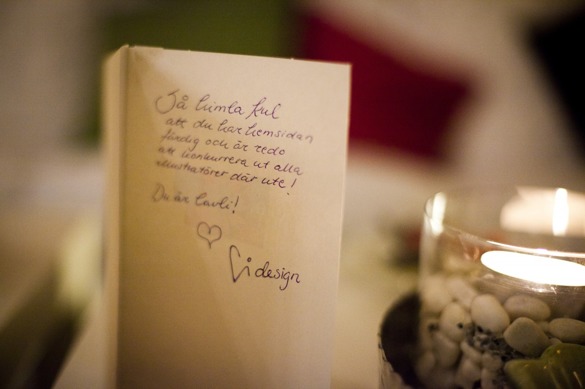 Så himla kul
att du har hemsidan
färdig och är redo
att konkurrera ut alla
illustratörer där ute!
Du är lavli!
Li design